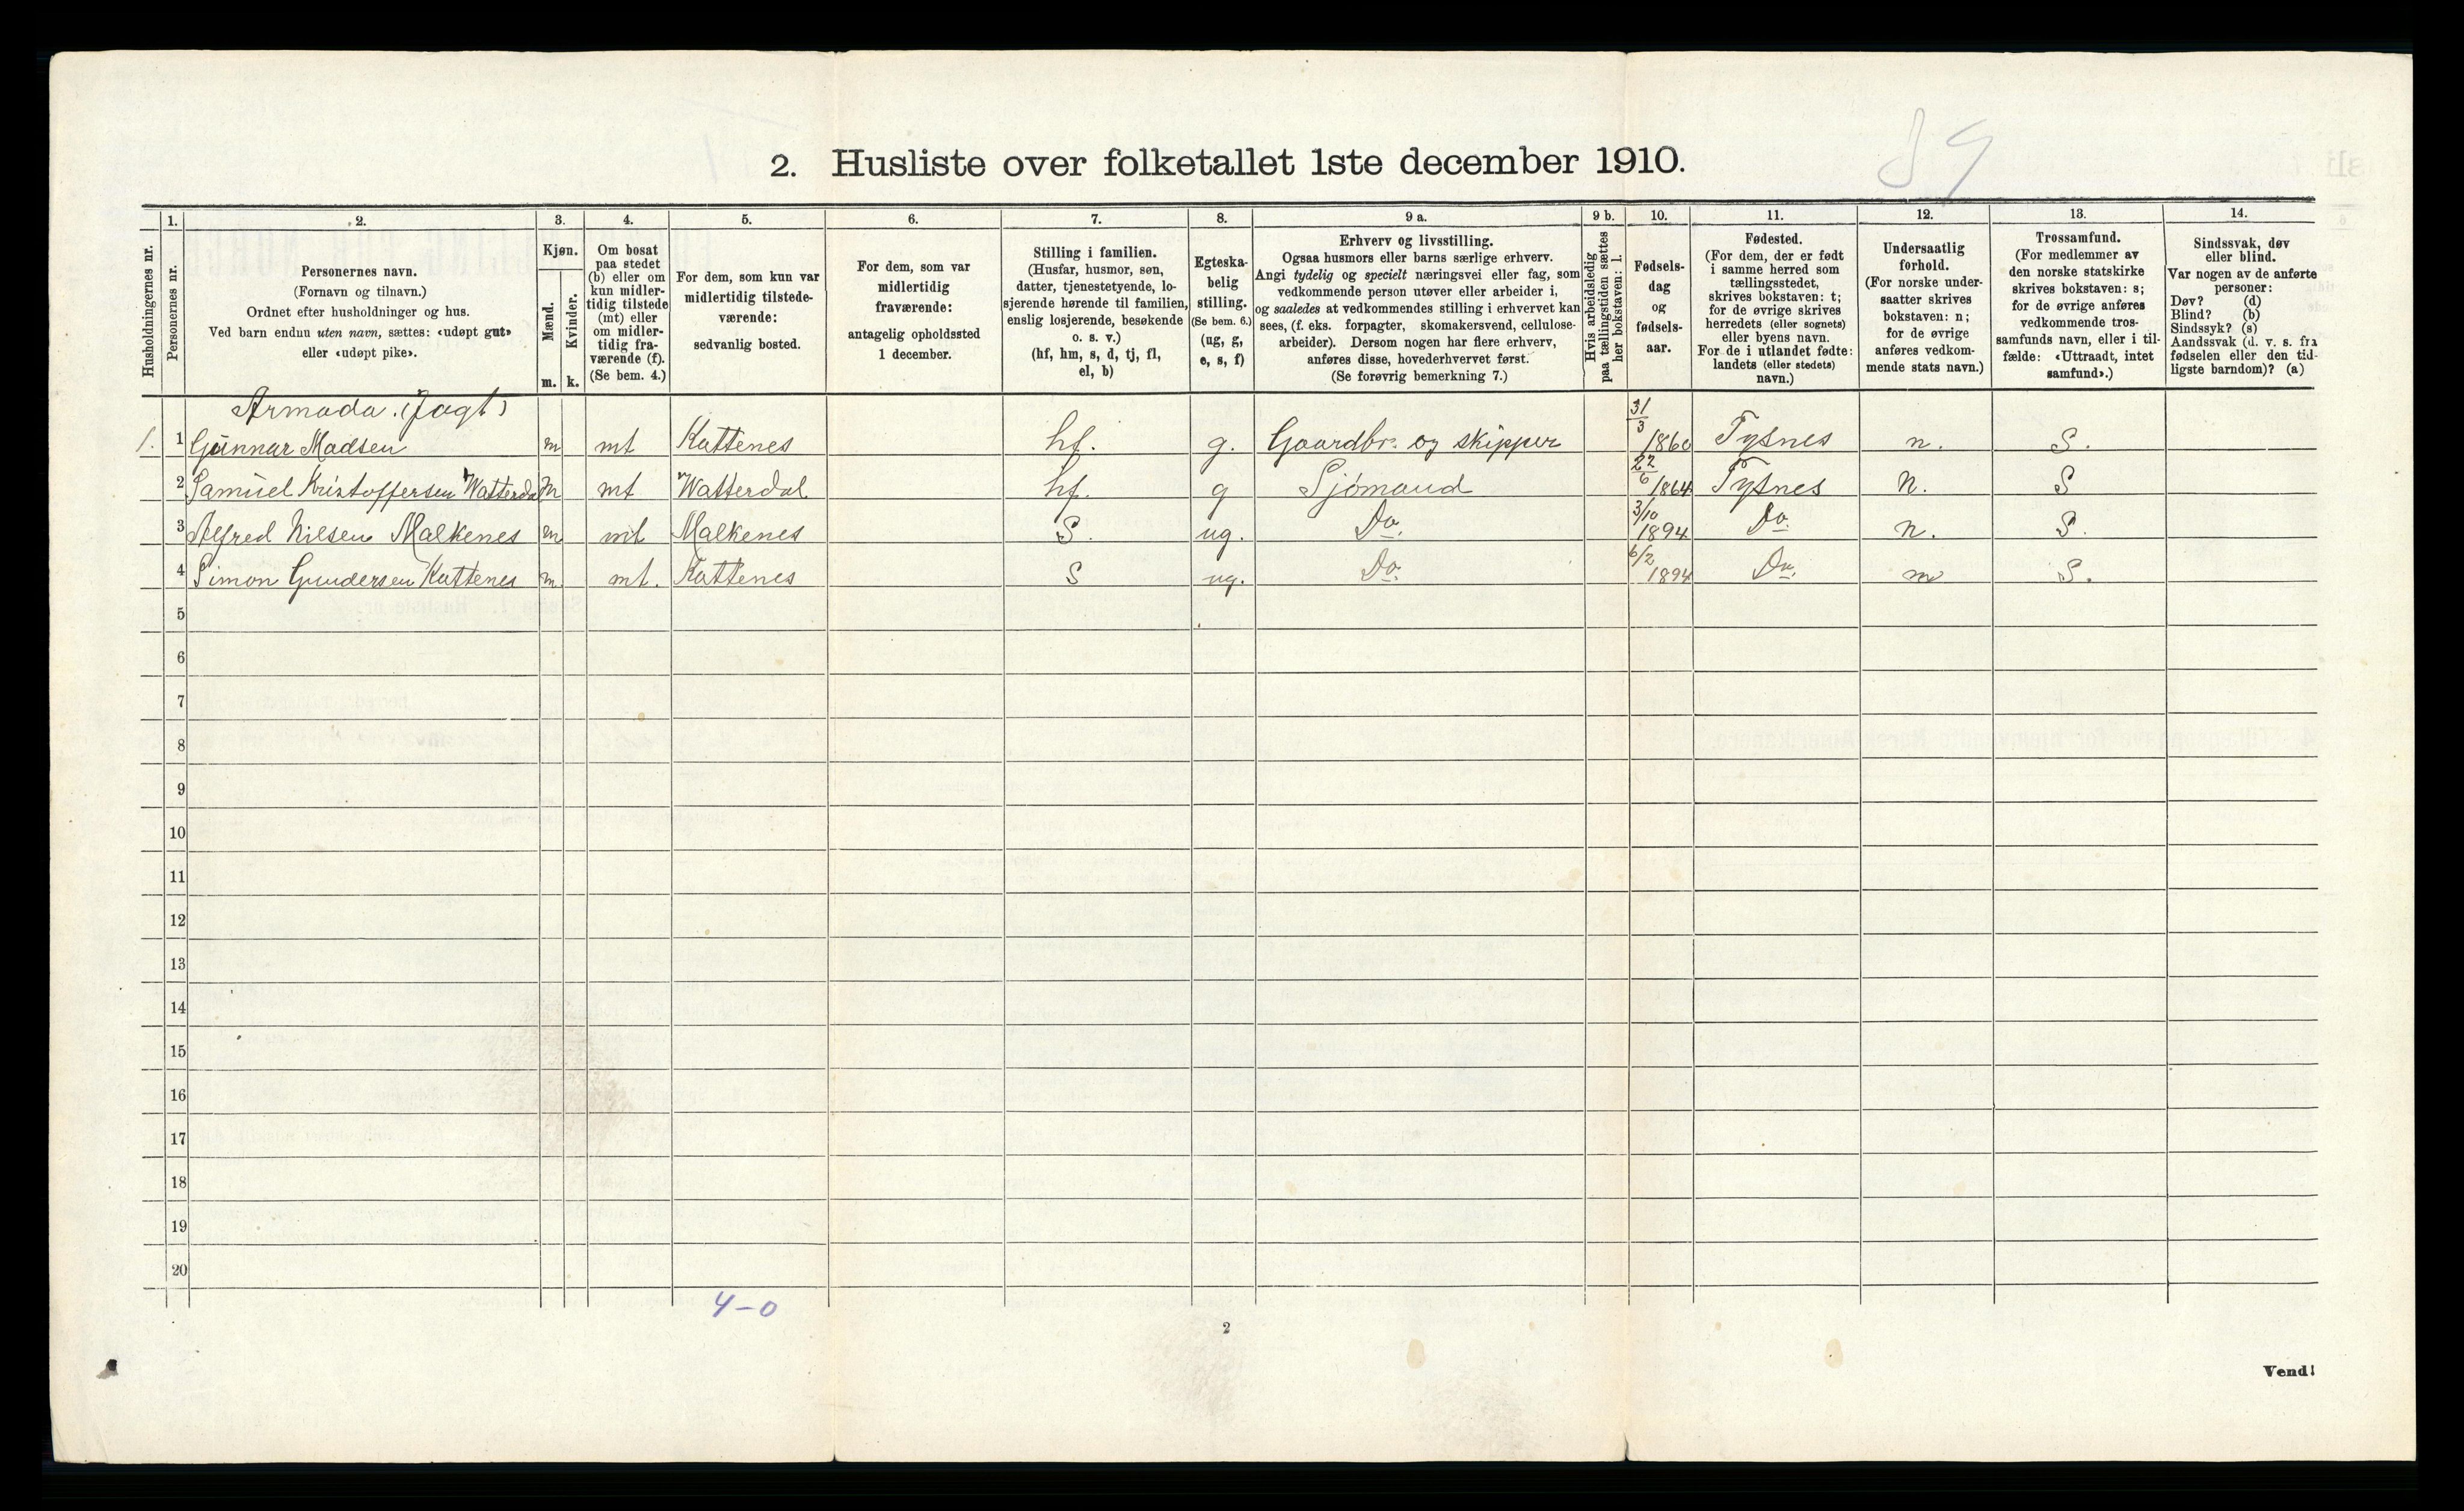 89
2. Husliste over folketallet 1ste december 1910.
1. 2. 3. 4. 5. 6. 7. 8. 9 a. 9 b. 10. 11. 12. 13. 14.
Husholdningernes nr.
Personernes nr.
Personernes navn.
(Fornavn og tilnavn.)
Ordnet efter husholdninger og hus.
Ved barn endnu uten navn, sættes: «udøpt gut»
eller «udøpt pike».
Kjøn.
Mænd.
Kvinder.
m. k.
Om bosat
paa stedet
(b) eller om
kun midler-
tidig tilstede
(mt) eller
om midler-
tidig fra-
værende (f).
(Se bem. 4.)
For dem, som kun var
midlertidig tilstede-
værende:
sedvanlig bosted.
For dem, som var
midlertidig
fraværende:
antagelig opholdssted
1 december.
Stilling i familien.
(Husfar, husmor, søn,
datter, tjenestetyende, lo-
sjerende hørende til familien,
enslig losjerende, besøkende
o. s. v.)
(hf, hm, s, d, tj, fl,
el, b)
Egteska-
belig
stilling.
(Se bem. 6.)
(ug, g,
e, s, f)
Erhverv og livsstilling.
Ogsaa husmors eller barns særlige erhverv.
Angi tydelig og specielt næringsvei eller fag, som
vedkommende person utøver eller arbeider i,
og saaledes at vedkommendes stilling i erhvervet kan
sees, (f. eks. forpagter, skomakersvend, cellulose-
arbeider). Dersom nogen har flere erhverv,
anføres disse, hovederhvervet først.
(Se forøvrig bemerkning 7.)
Hvis arbeidsledig
paa tællingstiden sættes
her bokstaven: l.
Fødsels-
dag
og
fødsels-
aar.
Fødested.
(For dem, der er født
i samme herred som
tællingsstedet,
skrives bokstaven: t;
for de øvrige skrives
herredets (eller sognets)
eller byens navn.
For de i utlandet fødte:
landets (eller stedets)
navn.)
Undersaatlig
forhold.
(For norske under-
saatter skrives
bokstaven: n;
for de øvrige
anføres vedkom-
mende stats navn.)
Trossamfund.
(For medlemmer av
den norske statskirke
skrives bokstaven: s;
for de øvrige anføres
vedkommende tros-
samfunds navn, eller i til-
fælde: «Uttraadt, intet
samfund».)
Sindssvak, døv
eller blind.
Var nogen av de anførte
personer:
Døv? (d)
Blind? (b)
Sindssyk? (s)
Aandssvak (d. v. s. fra
fødselen eller den tid-
ligste barndom)? (a)
Armada. (Jagt)
1. 1 Gunnar Madsen m mt Kattenes hf. g. Gaardbr. og skipper 31/3 1860 Tysnes n. S.
2 Samuel Kristoffersen Watterdal m mt Watterdal hf. g Sjømand 22/6 1864 Tysnes n. S
3 Alfred Nilsen Malkenes m mt Malkenes S. ug. Do. 3/10 1894 Do. n. S.
4 Simon Gundersen Kattenes m. mt. Kattenes S ug. Do. 6/2 1894 Do. n S.
5
6
7
8
9
10
11
12
13
14
15
16
17
18
19
20
4-0
2
Vend!